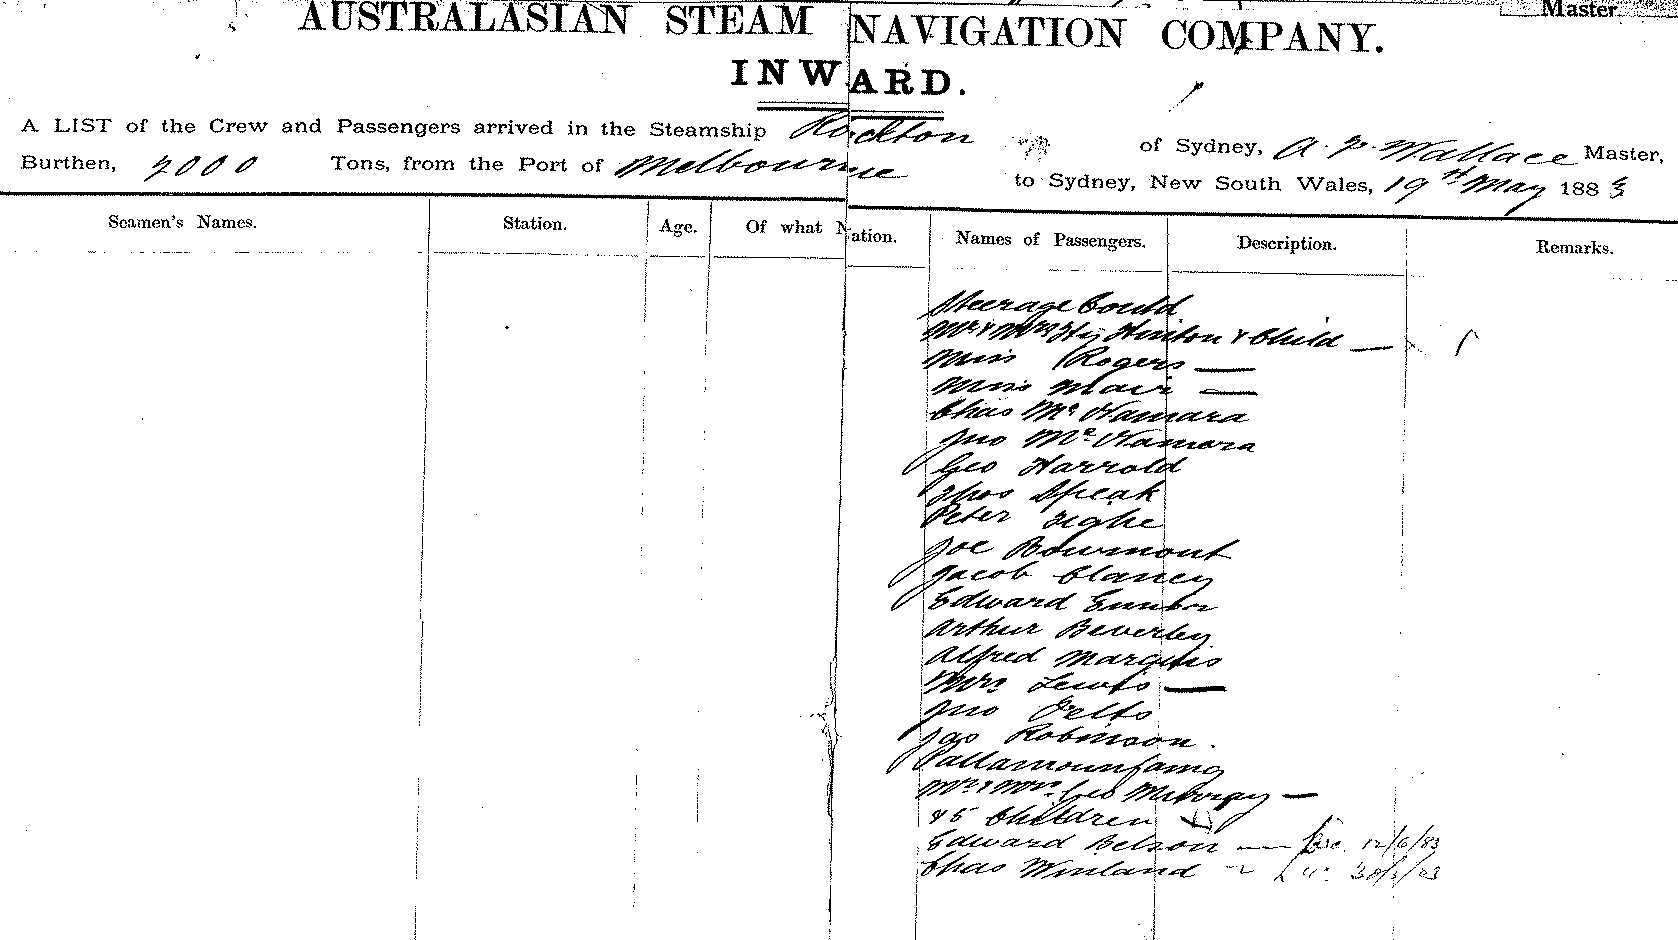 Master
AUSTRALASIAN STEAM NAVIGATION COMPANY.
INWARD.
A LIST of the Crew and Passengers arrived in the Steamship Rockton of Sydney, A. Wallace Master,
Burthen, 2000 Tons, from the Port of Melbourne to Sydney, New South Wales, 19th May 1883
Seamen's Names. Station. Age. Of what Nation. Names of Passengers. Description. Remarks.
Steerage Contd
Mr & Mrs Hy Hinton & Child —
Miss Rogers —
Miss Mair —
Chas McNamara
Jno McNamara
Geo Harrold
Thos Speak
Peter Tighe
Joe Bowmont
Jacob Clancy
Edward
Arthur Beverley
Alfred Marquis
Mrs Lewis —
Jno
Jas Robinson.
Mr & Mrs Geo Murray —
& 5 Children
Edward Belson — 12/6/83
Chas Winland